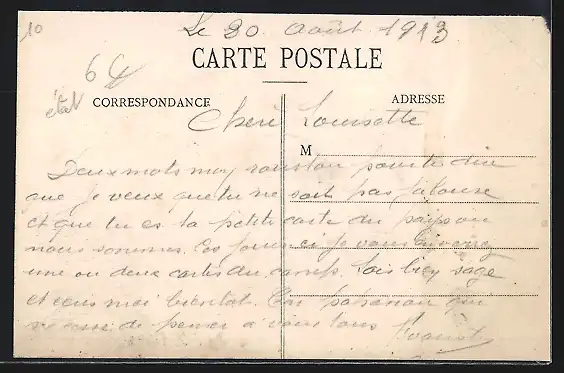 10
Le 20 Août 1913
CARTE POSTALE
6
état
CORRESPONDANCE
ADRESSE
Cheri Louisette
M
Deux mots mon pour te dire
que je veux que tu ne sois pas jalouse
et que tu es ta petite carte du pays ou
nous sommes. Ces jours ci je vous enverrez
une ou deux cartes du camp. Sois bien sage
et ecris moi bientôt. Ton qui
ne cesse de penser a vous tous